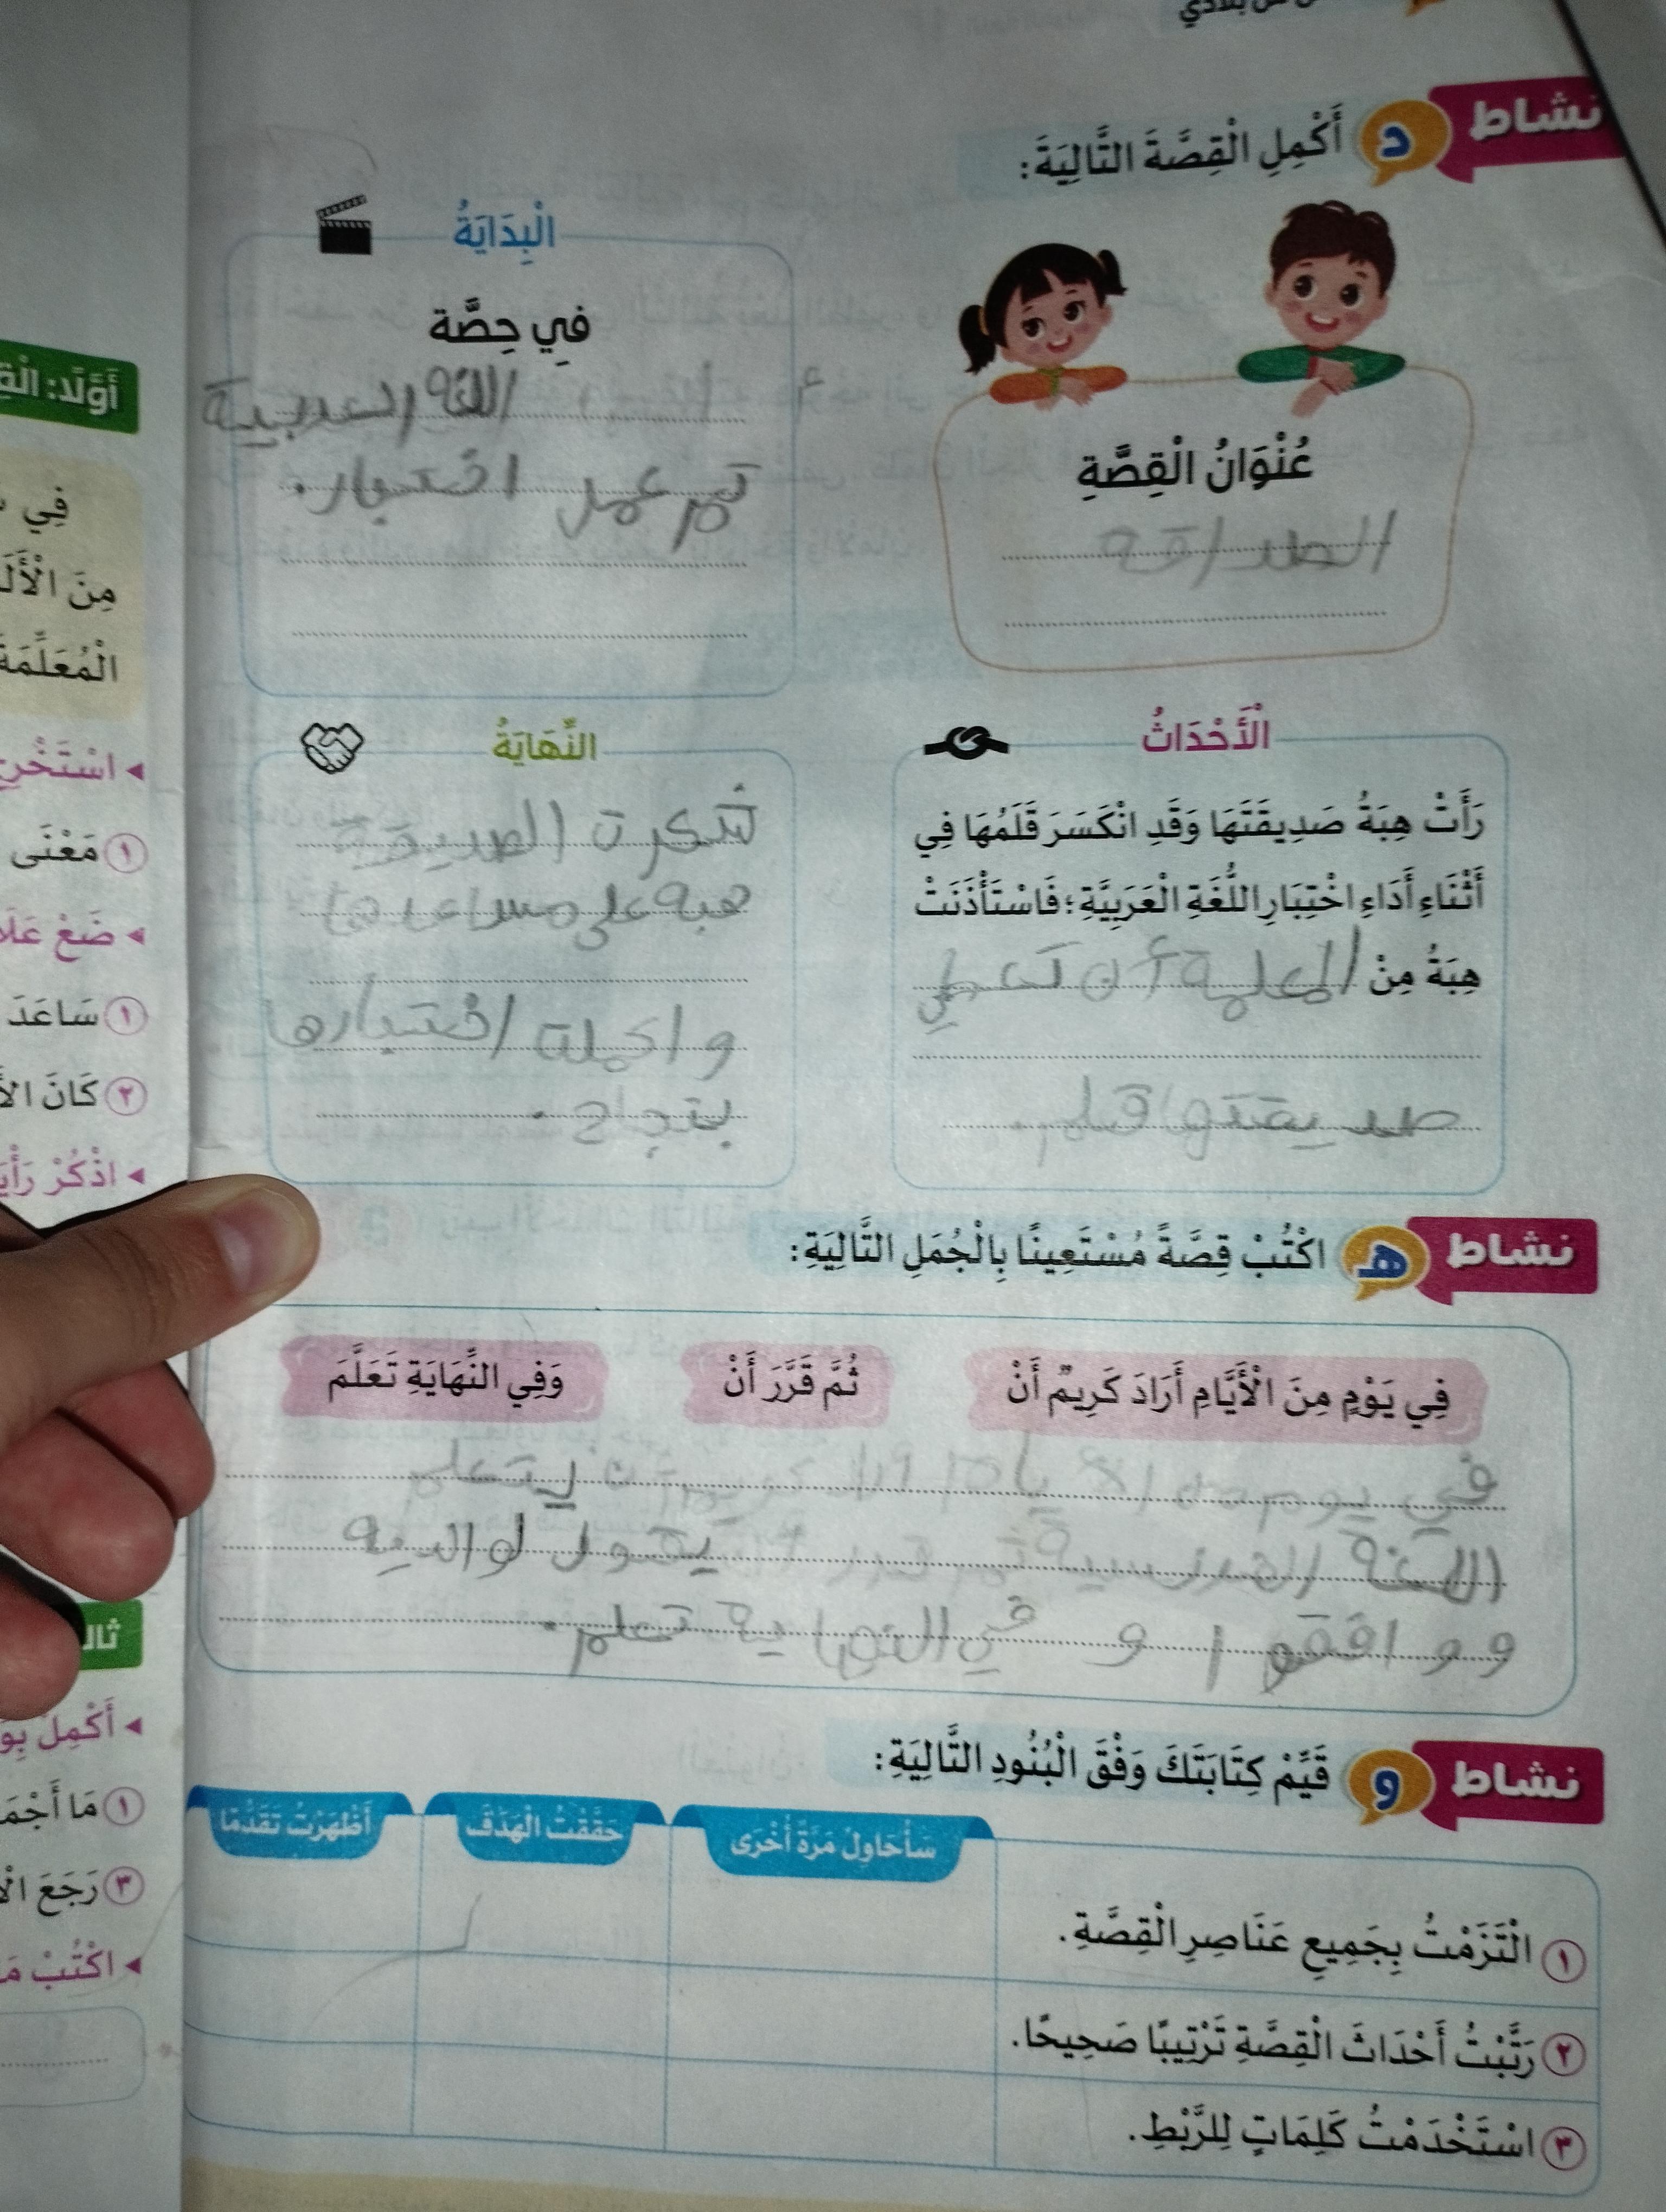 من بلادي
نشاط د أَكْمِلِ الْقِصَّةَ التَّالِيَةَ:
عُنْوَانُ الْقِصَّةِ
الصداقة
الْبِدَايَةُ
فِي حِصَّة
اللغة العربية
تم عمل اختبار.
الْأَحْدَاثُ
رَأَتْ هِبَةُ صَدِيقَتَهَا وَقَدِ انْكَسَرَ قَلَمُهَا فِي
أَثْنَاءِ أَدَاءِ اخْتِبَارِ اللُّغَةِ الْعَرَبِيَّةِ؛ فَاسْتَأْذَنَتْ
هِبَةُ مِنْ المعلمة أن تعطي
صديقتها قلم.
النِّهَايَةُ
تشكرت الصديقة
هبة على مساعدها
واكملة اختبارها
بنجاح.
نشاط هـ اكْتُبْ قِصَّةً مُسْتَعِينًا بِالْجُمَلِ التَّالِيَةِ:
فِي يَوْمٍ مِنَ الْأَيَّامِ أَرَادَ كَرِيمٌ أَنْ
ثُمَّ قَرَّرَ أَنْ
وَفِي النِّهَايَةِ تَعَلَّمَ
في يوم من الأيام اراد كريم أن يتعلم
اللغة الفرنسية ثم قرر أن يقول لوالديه
و وافقو ا و في النهاية تعلم.
نشاط و قَيِّمْ كِتَابَتَكَ وَفْقَ الْبُنُودِ التَّالِيَةِ:
سَأُحَاوِلُ مَرَّةً أُخْرَى
حَقَّقْتُ الْهَدَفَ
أَظْهَرْتُ تَقَدُّمًا
١ الْتَزَمْتُ بِجَمِيعِ عَنَاصِرِ الْقِصَّةِ.
٢ رَتَّبْتُ أَحْدَاثَ الْقِصَّةِ تَرْتِيبًا صَحِيحًا.
٣ اسْتَخْدَمْتُ كَلِمَاتٍ لِلرَّبْطِ.
أَوَّلًا:
فِي
مِنَ
الْمُعَلِّمَة
١ مَعْنَى
ضَعْ
١ سَاعَدَ
٢ كَانَ
اذْكُرْ
أَكْمِلْ
١ مَا
٣ رَجَعَ
اكْتُبْ